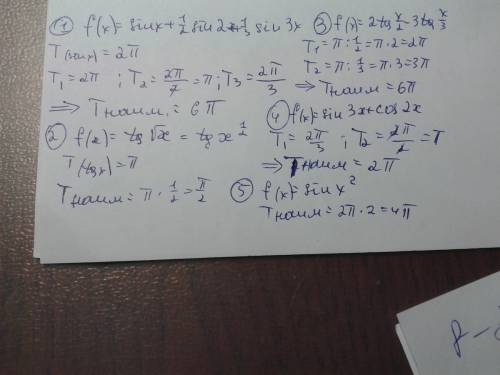 ① f(x)=sinx+1/2 sin2x+1/3 sin 3x
T(sinx)=2π
T₁=2π ; T₂=2π/2=π ; T₃=2π/3
⇒ Tнаим.=6π
② f(x)=tg√x = tg x^1/2
T(tgx)=π
Tнаим=π·1/2=π/2
③ f(x)=2tg x/2-3tg x/3
T₁=π:1/2=π·2=2π
T₂=π:1/3=π·3=3π
⇒ Tнаим=6π
④ f(x)=sin 3x+cos2x
T₁=2π/3 ; T₂=2π/2=π
⇒ Tнаим=2π
⑤ f(x)=sinx²
Tнаим=2π·2=4π